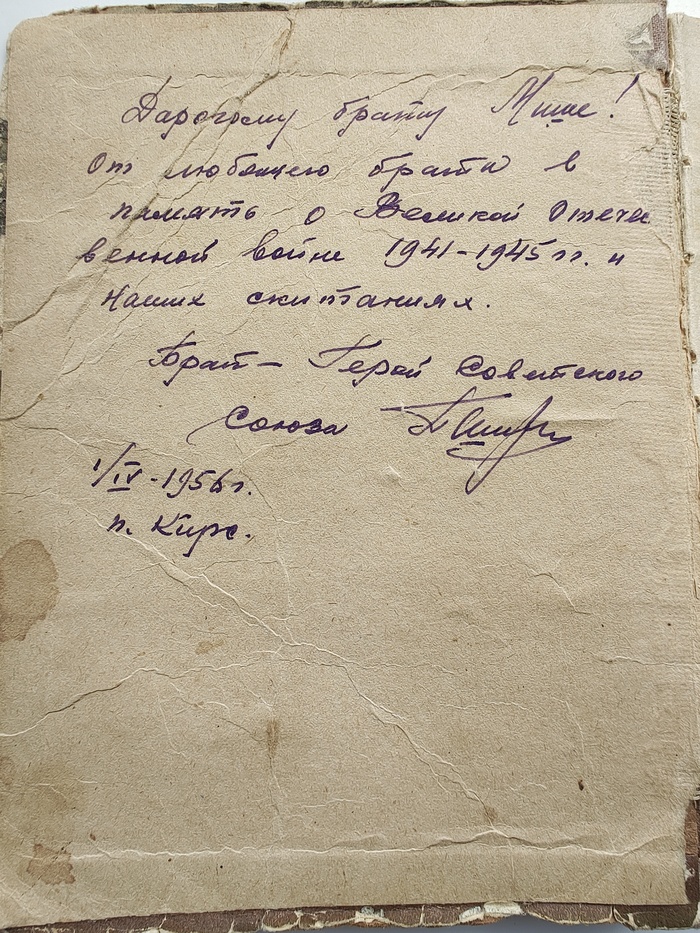 Дарогому брату Мише!
От любящего брата в
память о Великой Отече
венной войне 1941-1945 гг. и
наших скитаниях.
Брат - Герой Советского
Союза
1/IV-1956г.
п. Кирс.